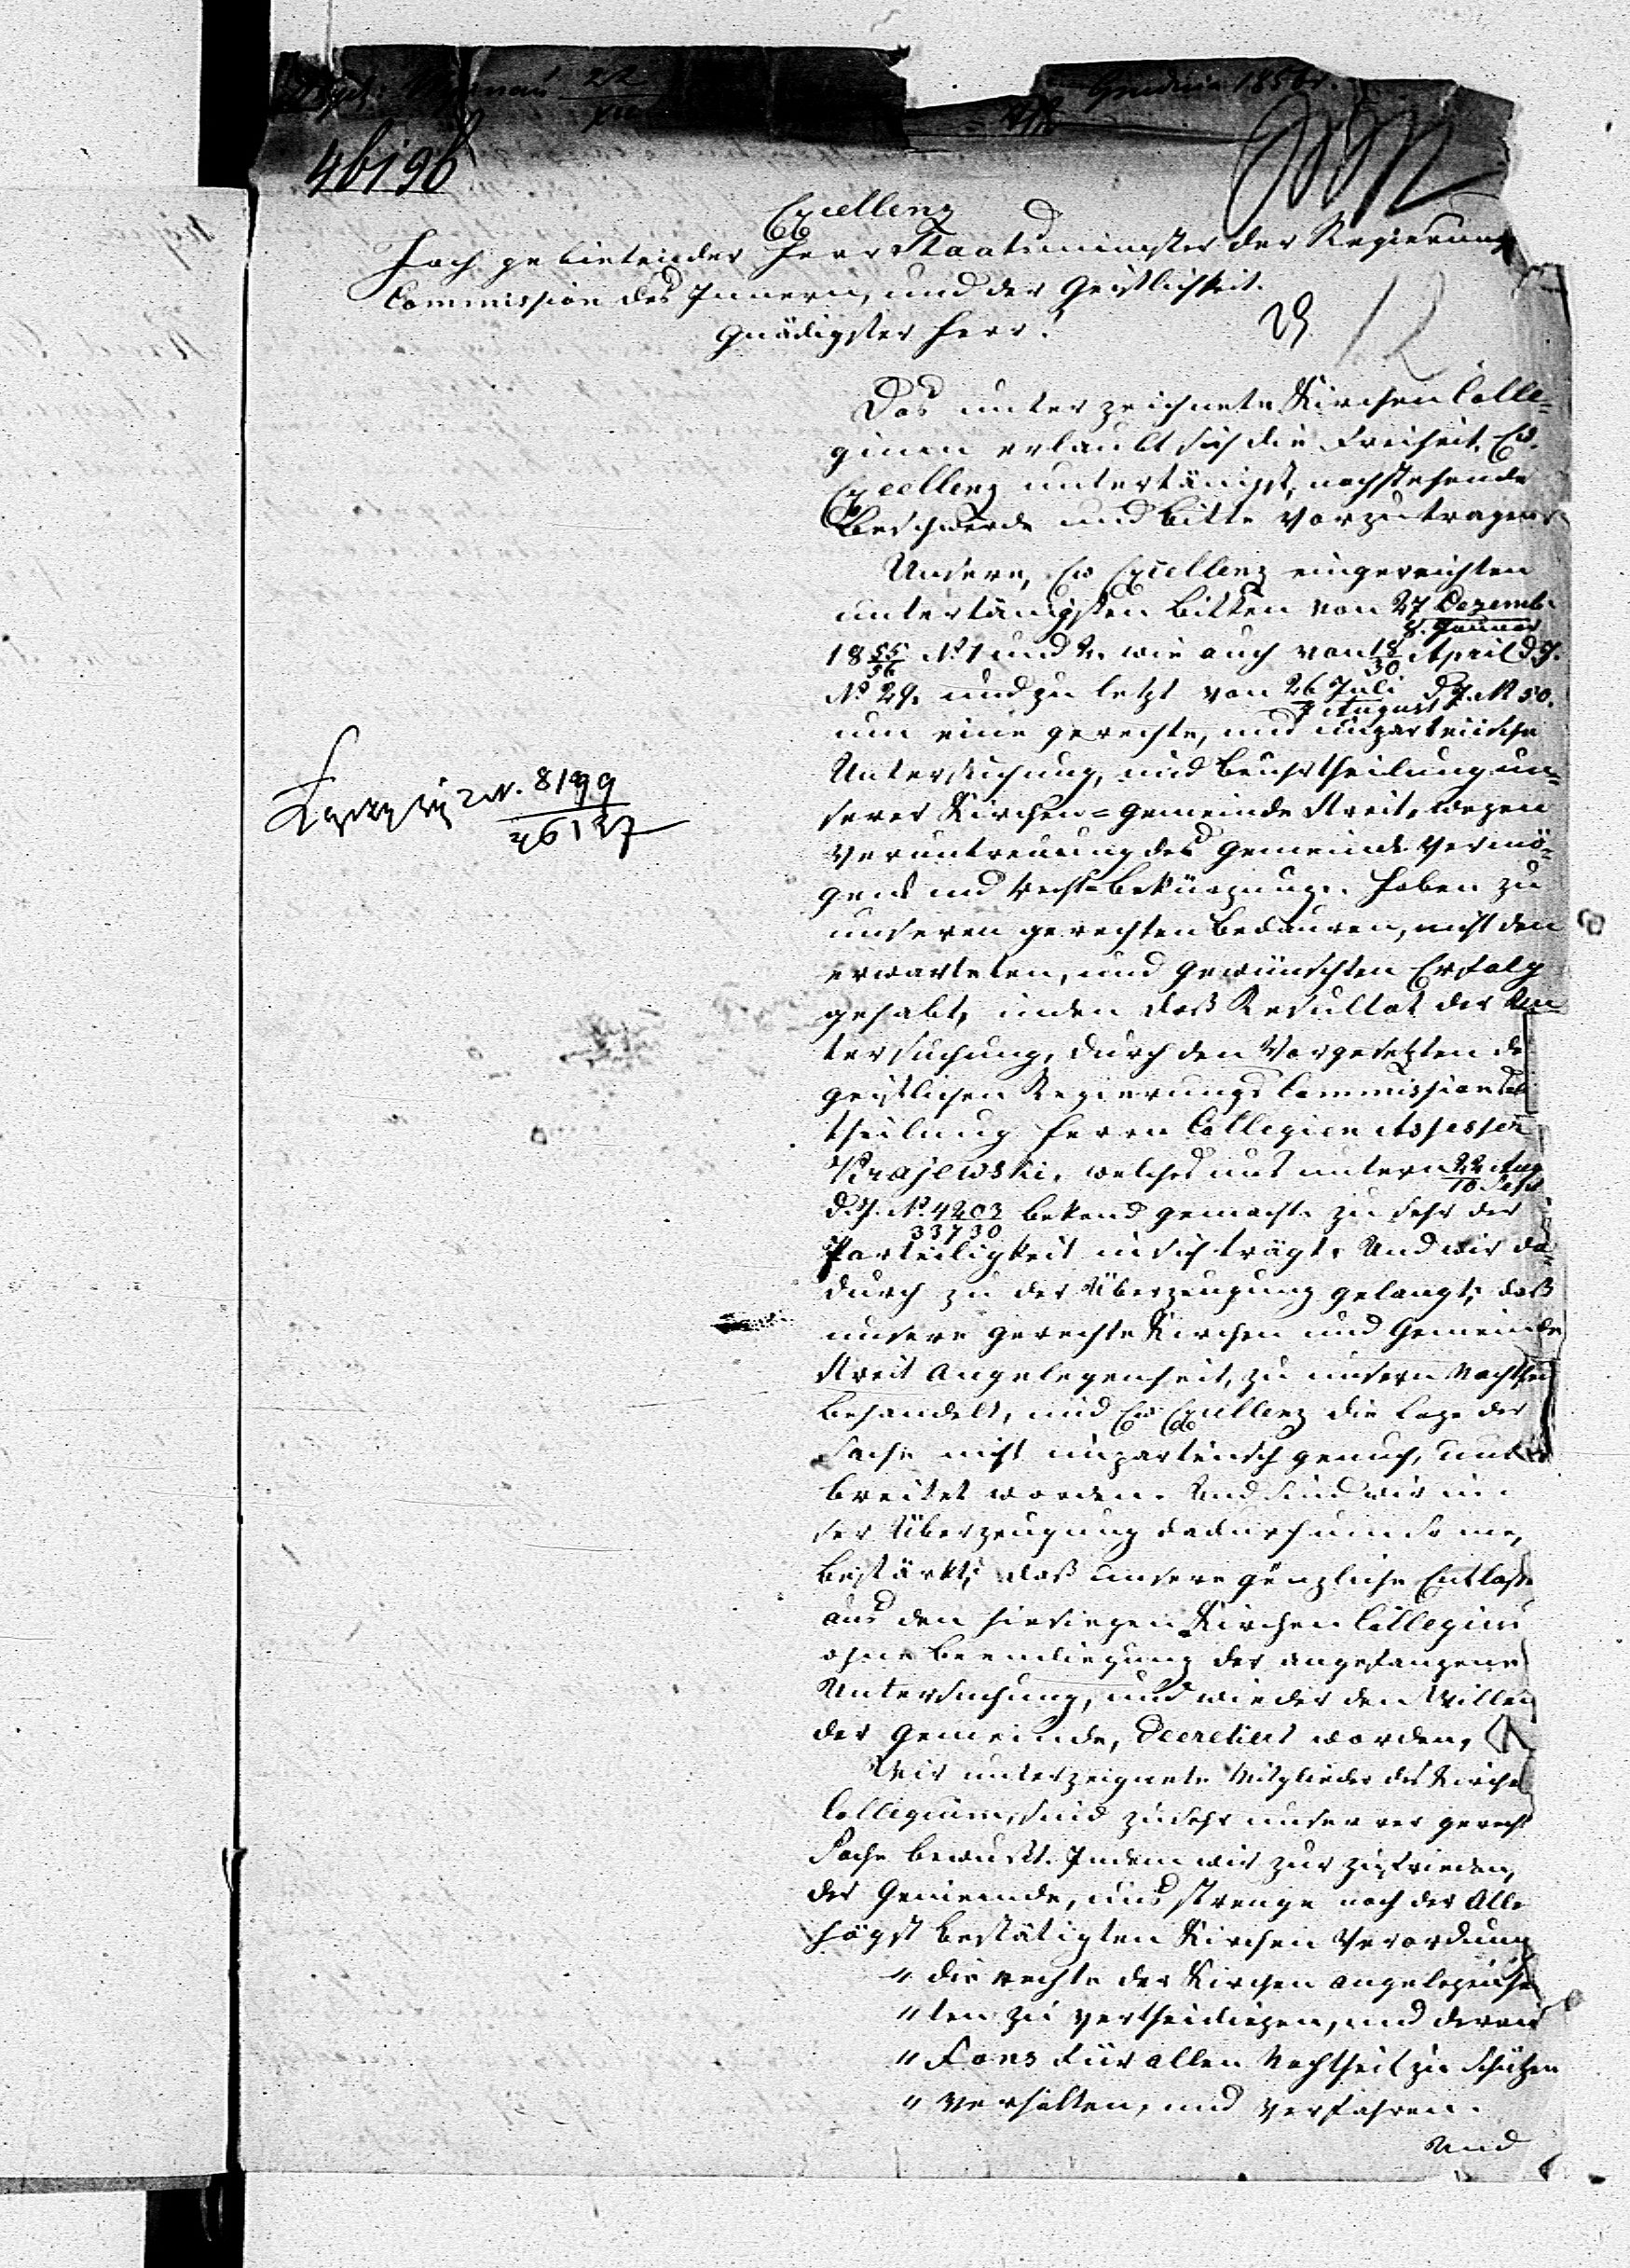 22
Grudnia 1856 r.
46196
Excellenz
Hoch gebietender Herr Staatsminister der Regierungs
Commission des Innern, und der Geistlichkeit.
Gnädigster Herr!
12
Das unterzeichnete Kirchen Colle-
gium erlaubt sich die Freiheit, Ew.
Excellenz untertänigst, nachstehende
Beschwerde und bitte vorzutragen
Unsere, Ew Excellenz eingereichten
untertänigsten bitten von 27 Dezemb.
8. Januar
18 55/56 No 1 und 2. wie auch von 18/30 April d. J.
No 29. und zu letzt von 26 Juli d. J. N 50.
7 August
um eine gerechte, und unparteiische
Untersuchung, und beurtheilung un-
serer Kirchen-gemeinde Streit, wegen
Veruntreuung des Gemeinde Vermö-
gens und Recht-bekürzung. haben zu
unseren gerechten bedauren, nicht den
erwarteten, und gewünschten Erfolg
gehabt, inden daß Resultat der Un-
tersuchung, durch den Vorgesetzten de
geistlichen Regierungs Commission
theilung Herrn Collegien Assessor
Krajewski, welches uns untern 22 Aug
10 Sep
d. J. No 4203 bekand gemacht zu sehr der
33730
Parteiligkeit in sich trägt. Und wir da-
durch zu der Überzeugung gelangt, daß
unsere gerechte Kirchen und Gemeinde
Streit angelegenheit, zu unsern Nachthei
behandelt, und Ew Excellenz die Lage der
Sache nicht unparteiisch genuch, unter
breitet worden. Und sind wir in
ser Überzeugung dadurch um so me,
bestärkt, daß unsere gänzliche Entlass
aus den hiesiegen Kirchen Collegium
ohne beendiegung der angefangene
Untersuchung, und wieder den Willen
der Gemeinde, decretiert worden,
Wir unterzeignete Mitglieder des Kirche
Collegium, sind zu sehr unserer gerecht
Sache bewußt. Indem wir zur zufrieden,
der Gemeinde, uns strenge nach der Alle
högst bestätigten Kirchen Verordnung
" die rechte der Kirchen angelegenhe
" ten zu vertheidiegen, und deren
" Fons für allen Nachtheil zu schützen
" verhalten, und verfahren.
Und
8199
26127